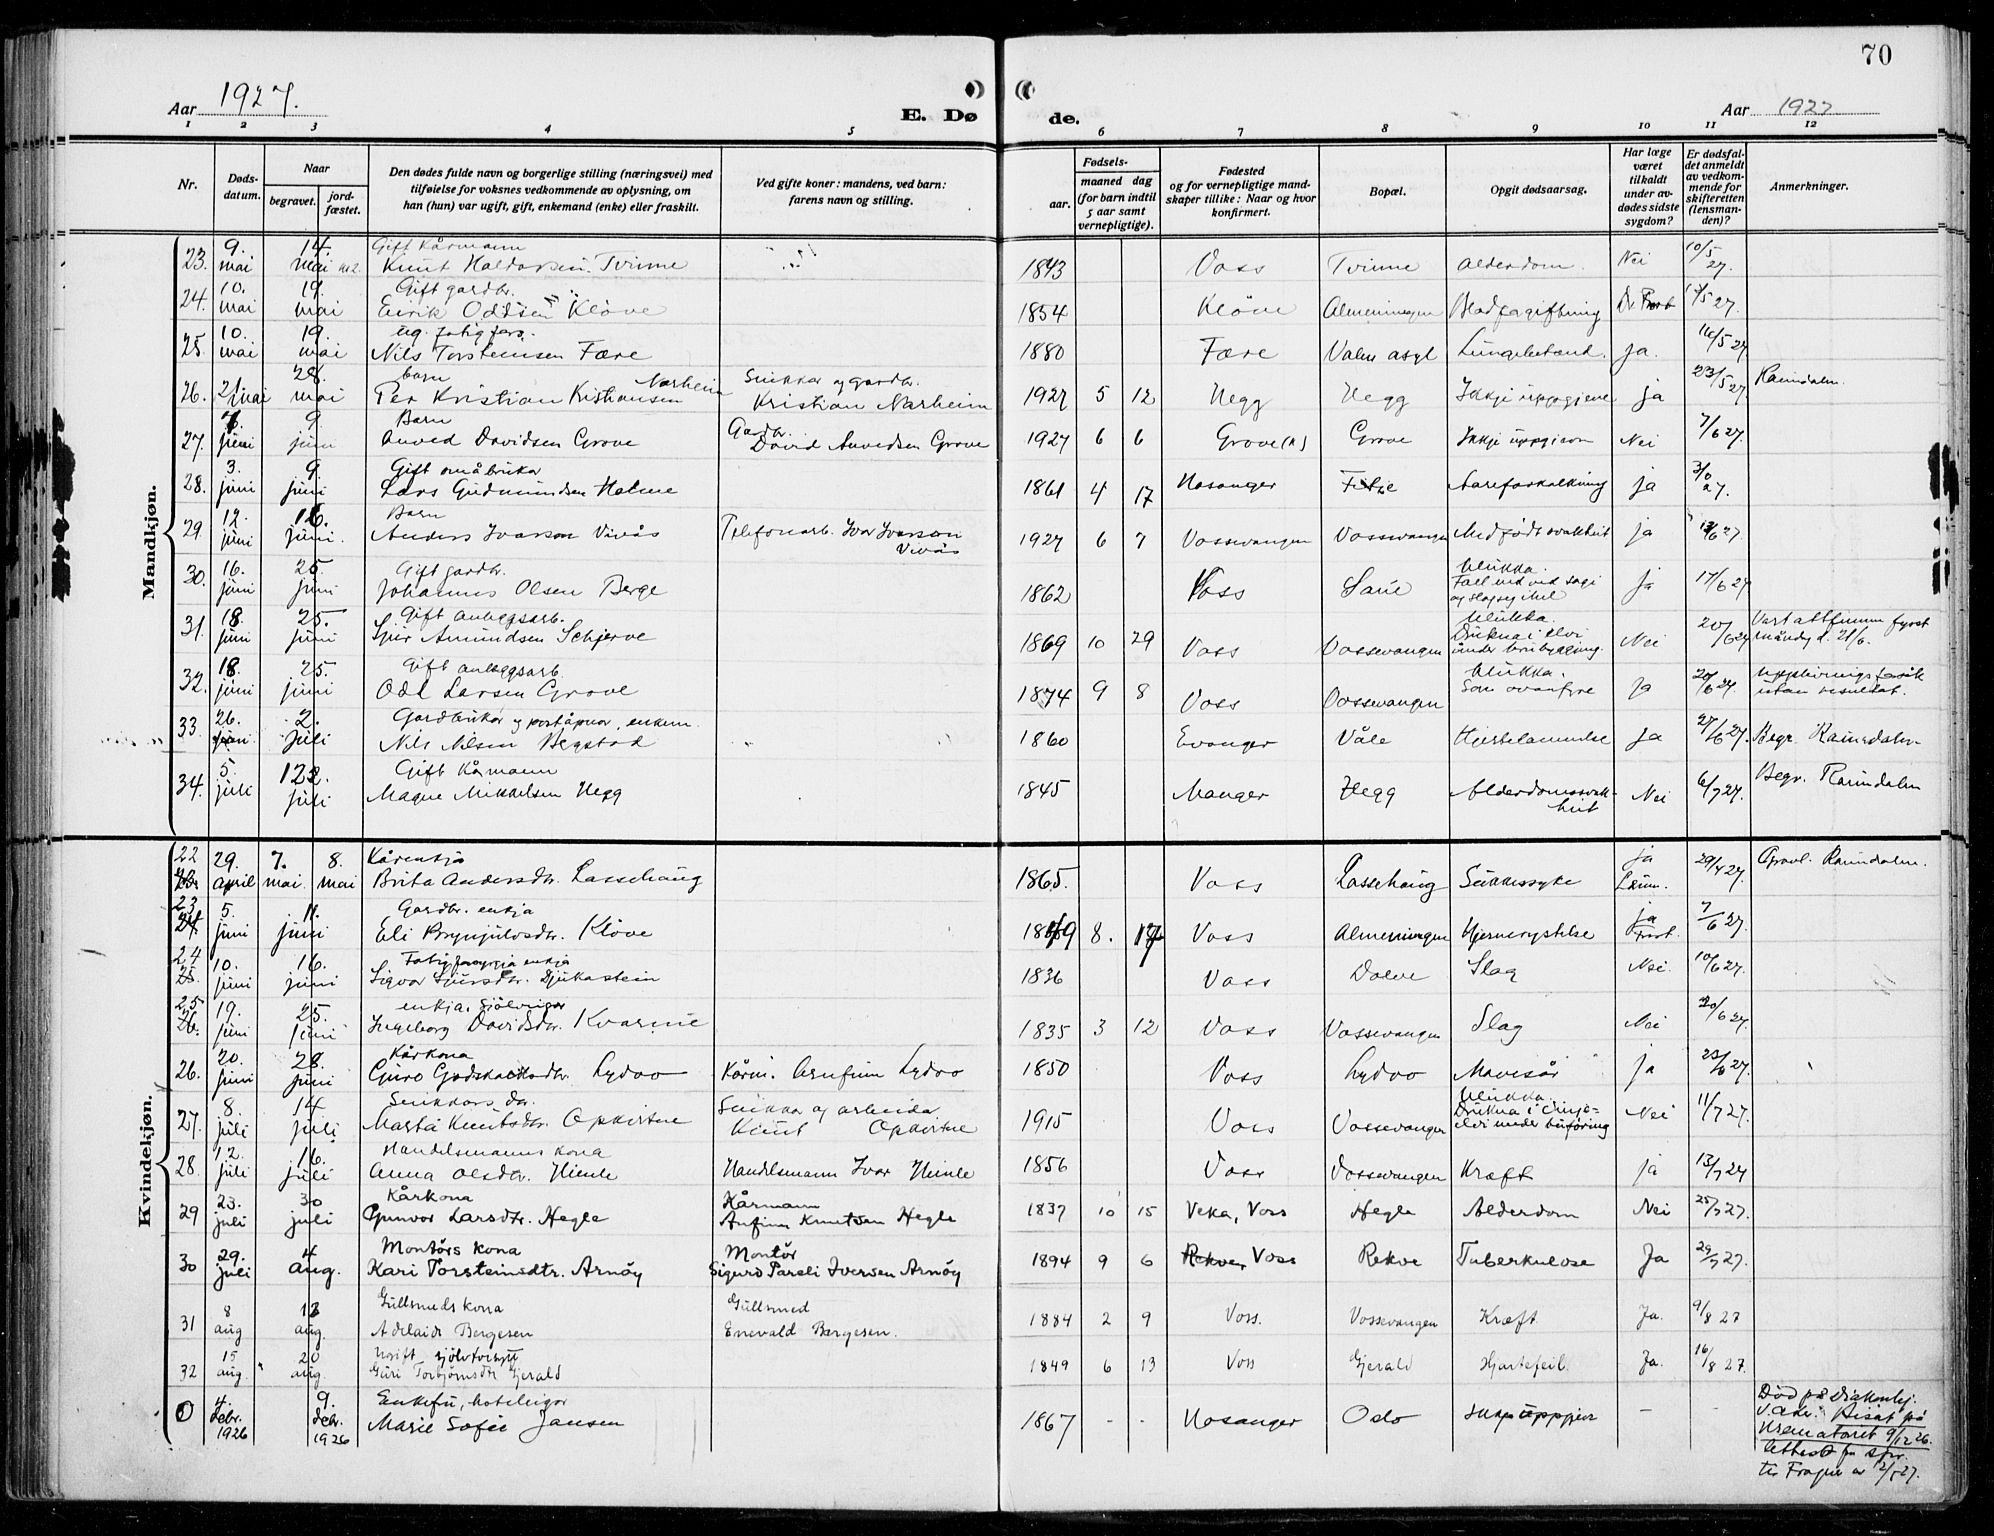 70
Aar 1927.
Aar 1927
E. Dø de.
1 2 3 4 5 6 7 8 9 10 11 12
Nr.
Dødsdatum.
Naar
begravet.
jordfæstet.
Den dødes fulde navn og borgerlige stilling (næringsvei) med
tilføielse for voksnes vedkommende av oplysning, om
han (hun) var ugift, gift, enkemand (enke) eller fraskilt.
Ved gifte koner: mandens, ved barn:
farens navn og stilling.
Fødsels-
aar.
maaned dag
(for barn indtil
5 aar samt
vernepligtige).
Fødested
og for vernepligtige mand-
skaper tillike: Naar og hvor
konfirmert.
Bopæl.
Opgit dødsaarsag.
Har læge
været
tilkaldt
under av-
dødes sidste
sygdom?
Er dødsfal-
det anmeldt
av vedkom-
mende for
skifteretten
(lensman-
den)?
Anmerkninger.
Mandkjøn.
23. 9. mai 14. mai Gift Kårmann
Knut Haldorsen Tvinne 1843 Voss Tvinne Alderdom. Nei 10/5 27.
24. 10. mai 19. mai Gift gardbr.
Eirik Oddsen Kløve 1854 Kløve Almenningen Blodforgiftning
25. 10. mai 19. mai Ug.
Nils Torsteinsen Fære 1880 Fære Ja. 16/5 27
26. 21 mai 28. mai barn
Per Kristian Kristiansen Narheim Snikkar og gardbr.
Kristian Narheim 1927 5 12 Hegg Hegg Ikkje uppgjeve ja 23/5 27 Raundalen.
27. 7. juni 9 juni Barn
Anved Davidsen Grove Gardbr.
David Anvedsen Grove 1927 6 6 Grove Grove Ikkje uppgieve Nei 7/6 27.
28. 3. juni 9. juni Gift småbrukar
Lars Gudmundsen Helme 1861 4 17 Hosanger Aareforkalkning ja
29. 12. juni 16. juni. Barn
Anders Ivarson Vivås Telefonarb. Ivar Ivarson
Vivås 1927 6 7 Vossevangen Vossevangen Medfødt svakheit ja 13/6 27
30. 16. juni 25. juni Gift gardbr.
Johannes Olsen Berge 1862 Voss Ulukka. ja 17/6 27
31. 18. juni 25. juni Gift anleggsarb.
Sjur Amundsen Schjerve 1869 10 29 Voss Vossevangen Ulukka.
Drukna i elvi
under brubygging. Nei 20/6 27 Vart attfunnen fyrst
måndag d. 21/6.
32. 18. juni 25. juni Gift anleggsarb
Odd Larsen Grove 1874 9 8 Voss Vossevangen Ulukka.
Som ovanfyre Ja 20/6 27. Upplivningsforsøk
utan resultat.
33. 26. juni 2. juli Gardbrukar og poståpnar, enkem.
Nils Nilsen Bergstad 1860 Evanger Våle Hjertelammelse Ja 27/6 27. Begr. Raundalen
34. 5. juli 12. juli Gift Kårmann
Magne Mikkelsen Hegg 1845 Manger Hegg Alderdomssvak-
heit Nei 6/7 27. Begr. Raundalen
Kvindekjøn.
22 29. april 7. mai 8. mai Kårenkja
Brita Andersdtr. Lassehaug 1865. Voss Lassehaug Sukkersyke ja 29/4 27. Gravl. Raundalen.
23 5. juni 11. juni Gardbr. enkja
Eli Brynjulvsdtr. Kløve 1849 8. 17 Voss Almenningen Hjernerystelse ja 7/6 27.
24 10. juni 16. juni enkja
Sigvor Sjursdtr. Djukastein 1836 Voss Dolve Slag Nei 10/6 27.
25 19. juni 25. juni enkja, sjölveigar
Ingeborg Davidsdtr. Kvarme 1835 3 12 Voss Vossevangen Slag Nei 20/6 27.
26. 20. juni 28. juni Kårkona
Guro Godskalksdtr. Lydvo Kårm. Arnfinn Lydvo 1850 Voss Lydvo Mavesår ja 23/6 27.
27. 8. juli 14 juli Snikkars dtr.
Marta Knutsdtr. Opkvitne Snikkar og arbeidar
Knut Opkvitne 1915 Voss Vossevangen Ulukka. Nei 11/7 27.
28. 12. juli 16. juli Handelsmanns kona
Anna Olsdtr. Himle Handelsmann Ivar Himle 1856 Voss Vossevangen Kræft ja 13/7 27
29 23. juli 30 juli Kårkona
Gunvor Larsdtr. Hegle Kårmann
Anfinn Knutsen Hegle 1837 10 15 Veka, Voss Hegle Alderdom Nei 25/7 27.
30 29. juli 4 aug. Montörs kona
Kari Torsteinsdtr. Arnöy Montör
Sigurd Pareli Iversen Arnöy 1894 9 6 Rekve, Voss Rekve Tuberkulose Ja 29/7 27.
31 8 aug 13 aug. Gullsmeds kona
Adelaide Bergesen Gullsmed
Enevald Bergesen. 1884 2 9 Voss. Vossevangen Kræft Ja. 9/8 27
32 15 aug. 20 aug. Ugift, sjölvforsytt
Guri Torbjörnsdtr Gjerald 1849 6 13 Voss Gjerald Hjartefeil. Ja. 16/8 27.
0 4. debr. 1926 9. debr. 1926 Enkefru, hoteleigar
Marie Sofie Jansen 1867 - - Hosanger Oslo Ikkje uppgieve - - Död på diakonhj.
V. Aker. Bisat på
Krematoriet 9/12 26.